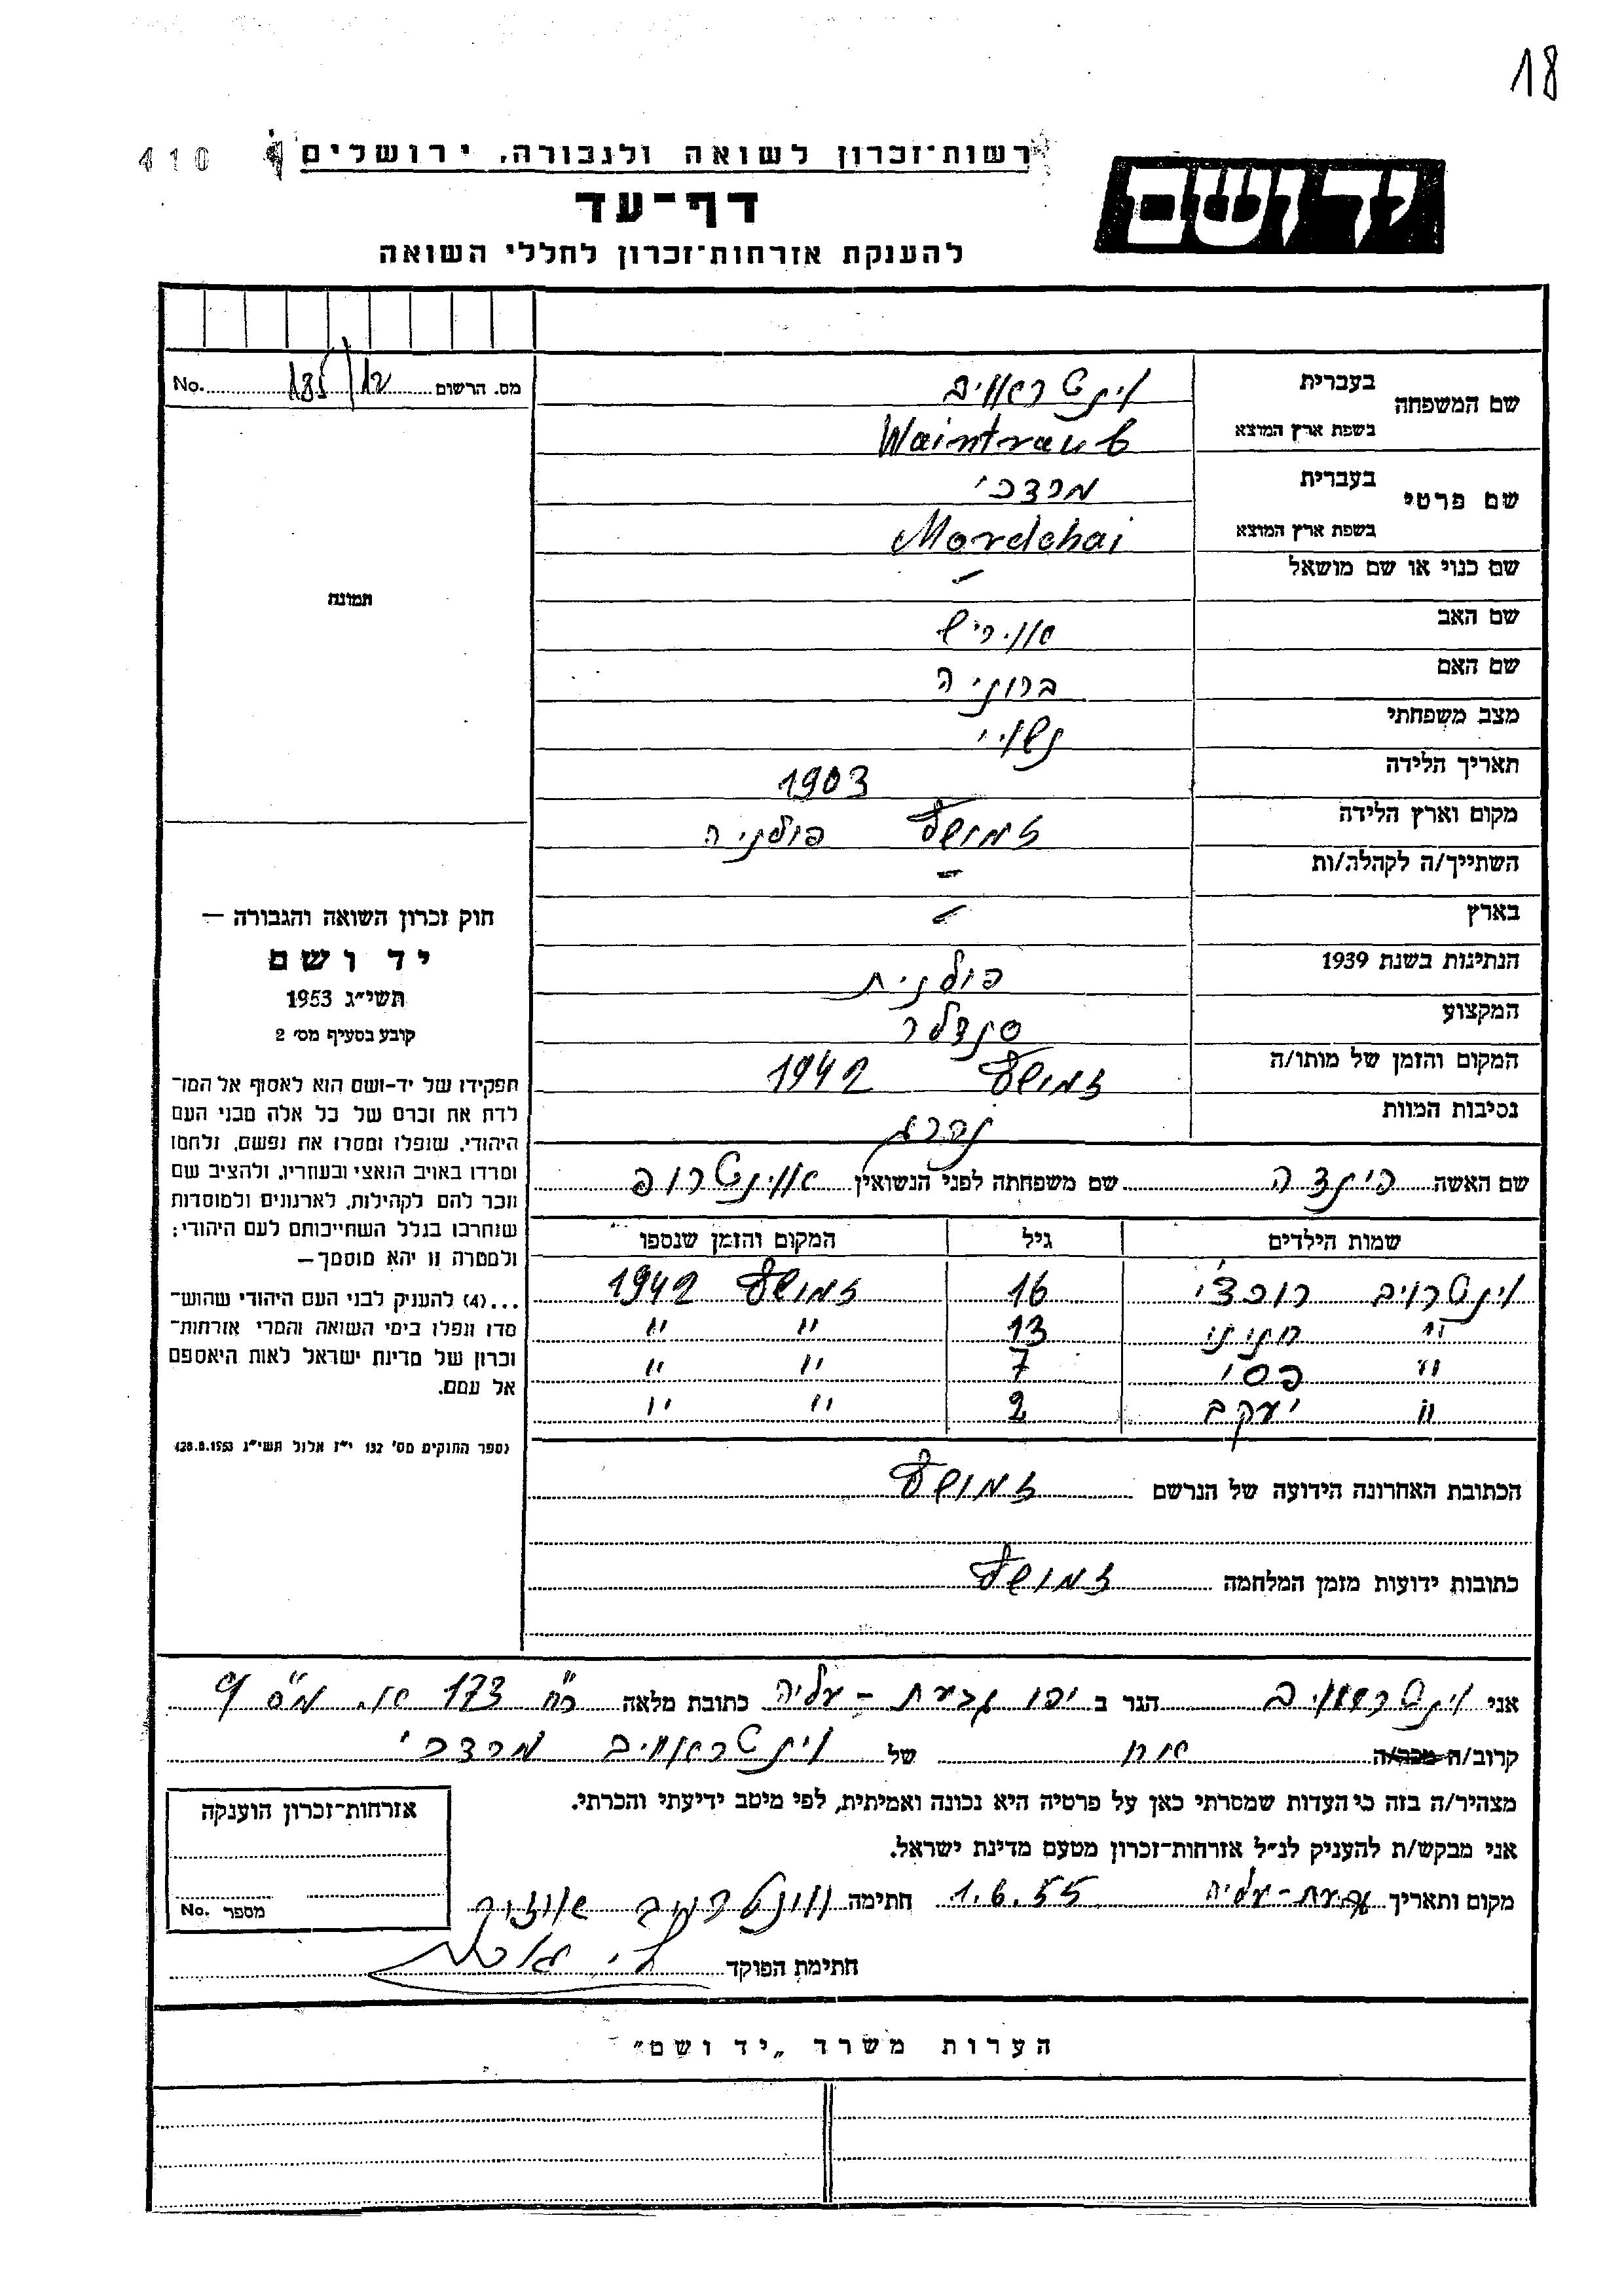 18
410
רשות־זכרון לשואה ולגבורה, ירושלים
יד ושם
דף־עד
להענקת אזרחות־זכרון לחללי השואה
מס. הרשום 185/12 No.
שם המשפחה בעברית וינטראויב
בשפת ארץ המוצא Waintraub
שם פרטי בעברית מרדכי
בשפת ארץ המוצא Mordchai
שם כנוי או שם מושאל –
שם האב
שם האם ברוניה
מצב משפחתי נשוי
תאריך הלידה 1903
מקום וארץ הלידה זמושץ פולניה
השתייך/ה לקהלה/ות –
בארץ –
הנתינות בשנת 1939 פולנית
המקצוע סנדלר
המקום והזמן של מותו/ה זמושץ 1942
נסיבות המוות נהרג
תמונה
חוק זכרון השואה והגבורה —
יד ושם
תשי״ג 1953
קובע בסעיף מס׳ 2
תפקידו של יד־ושם הוא לאסוף אל המו־
לדת את זכרם של כל אלה מבני העם
היהודי, שנפלו ומסרו את נפשם, נלחמו
ומרדו באויב הנאצי ובעוזריו, ולהציב שם
וזכר להם לקהילות, לארגונים ולמוסדות
שנחרבו בגלל השתייכותם לעם היהודי;
ולמטרה זו יהא מוסמך—
...(4) להעניק לבני העם היהודי שהוש־
מדו ונפלו בימי השואה והמרי אזרחות־
זכרון של מדינת ישראל לאות היאספם
אל עמם.
(ספר החוקים מס׳ 132 י״ז אלול תשי״ג 28.8.1953)
שם האשה הינדה שם משפחתה לפני הנשואין
שמות הילדים גיל המקום והזמן שנספו
וינטרויב רוכצי 16 זמושץ 1942
״ 13 ״ ״
״ פסי 7 ״ ״
״ יעקב 2 ״ ״
הכתובת האחרונה הידועה של הנרשם זמושץ
כתובות ידועות מזמן המלחמה זמושץ
אני הגר ב יפו גבעת-עליה כתובת מלאה רח 173
קרוב/ה מכר/ה אח של וינטראויב מרדכי
מצהיר/ה בזה כי העדות שמסרתי כאן על פרטיה היא נכונה ואמיתית, לפי מיטב ידיעתי והכרתי.
אני מבקש/ת להעניק לנ״ל אזרחות־זכרון מטעם מדינת ישראל.
מקום ותאריך גבעת-עליה 1.6.55 חתימה
חתימת הפוקד
אזרחות־זכרון הוענקה
מספר No.
הערות משרד „יד ושם״